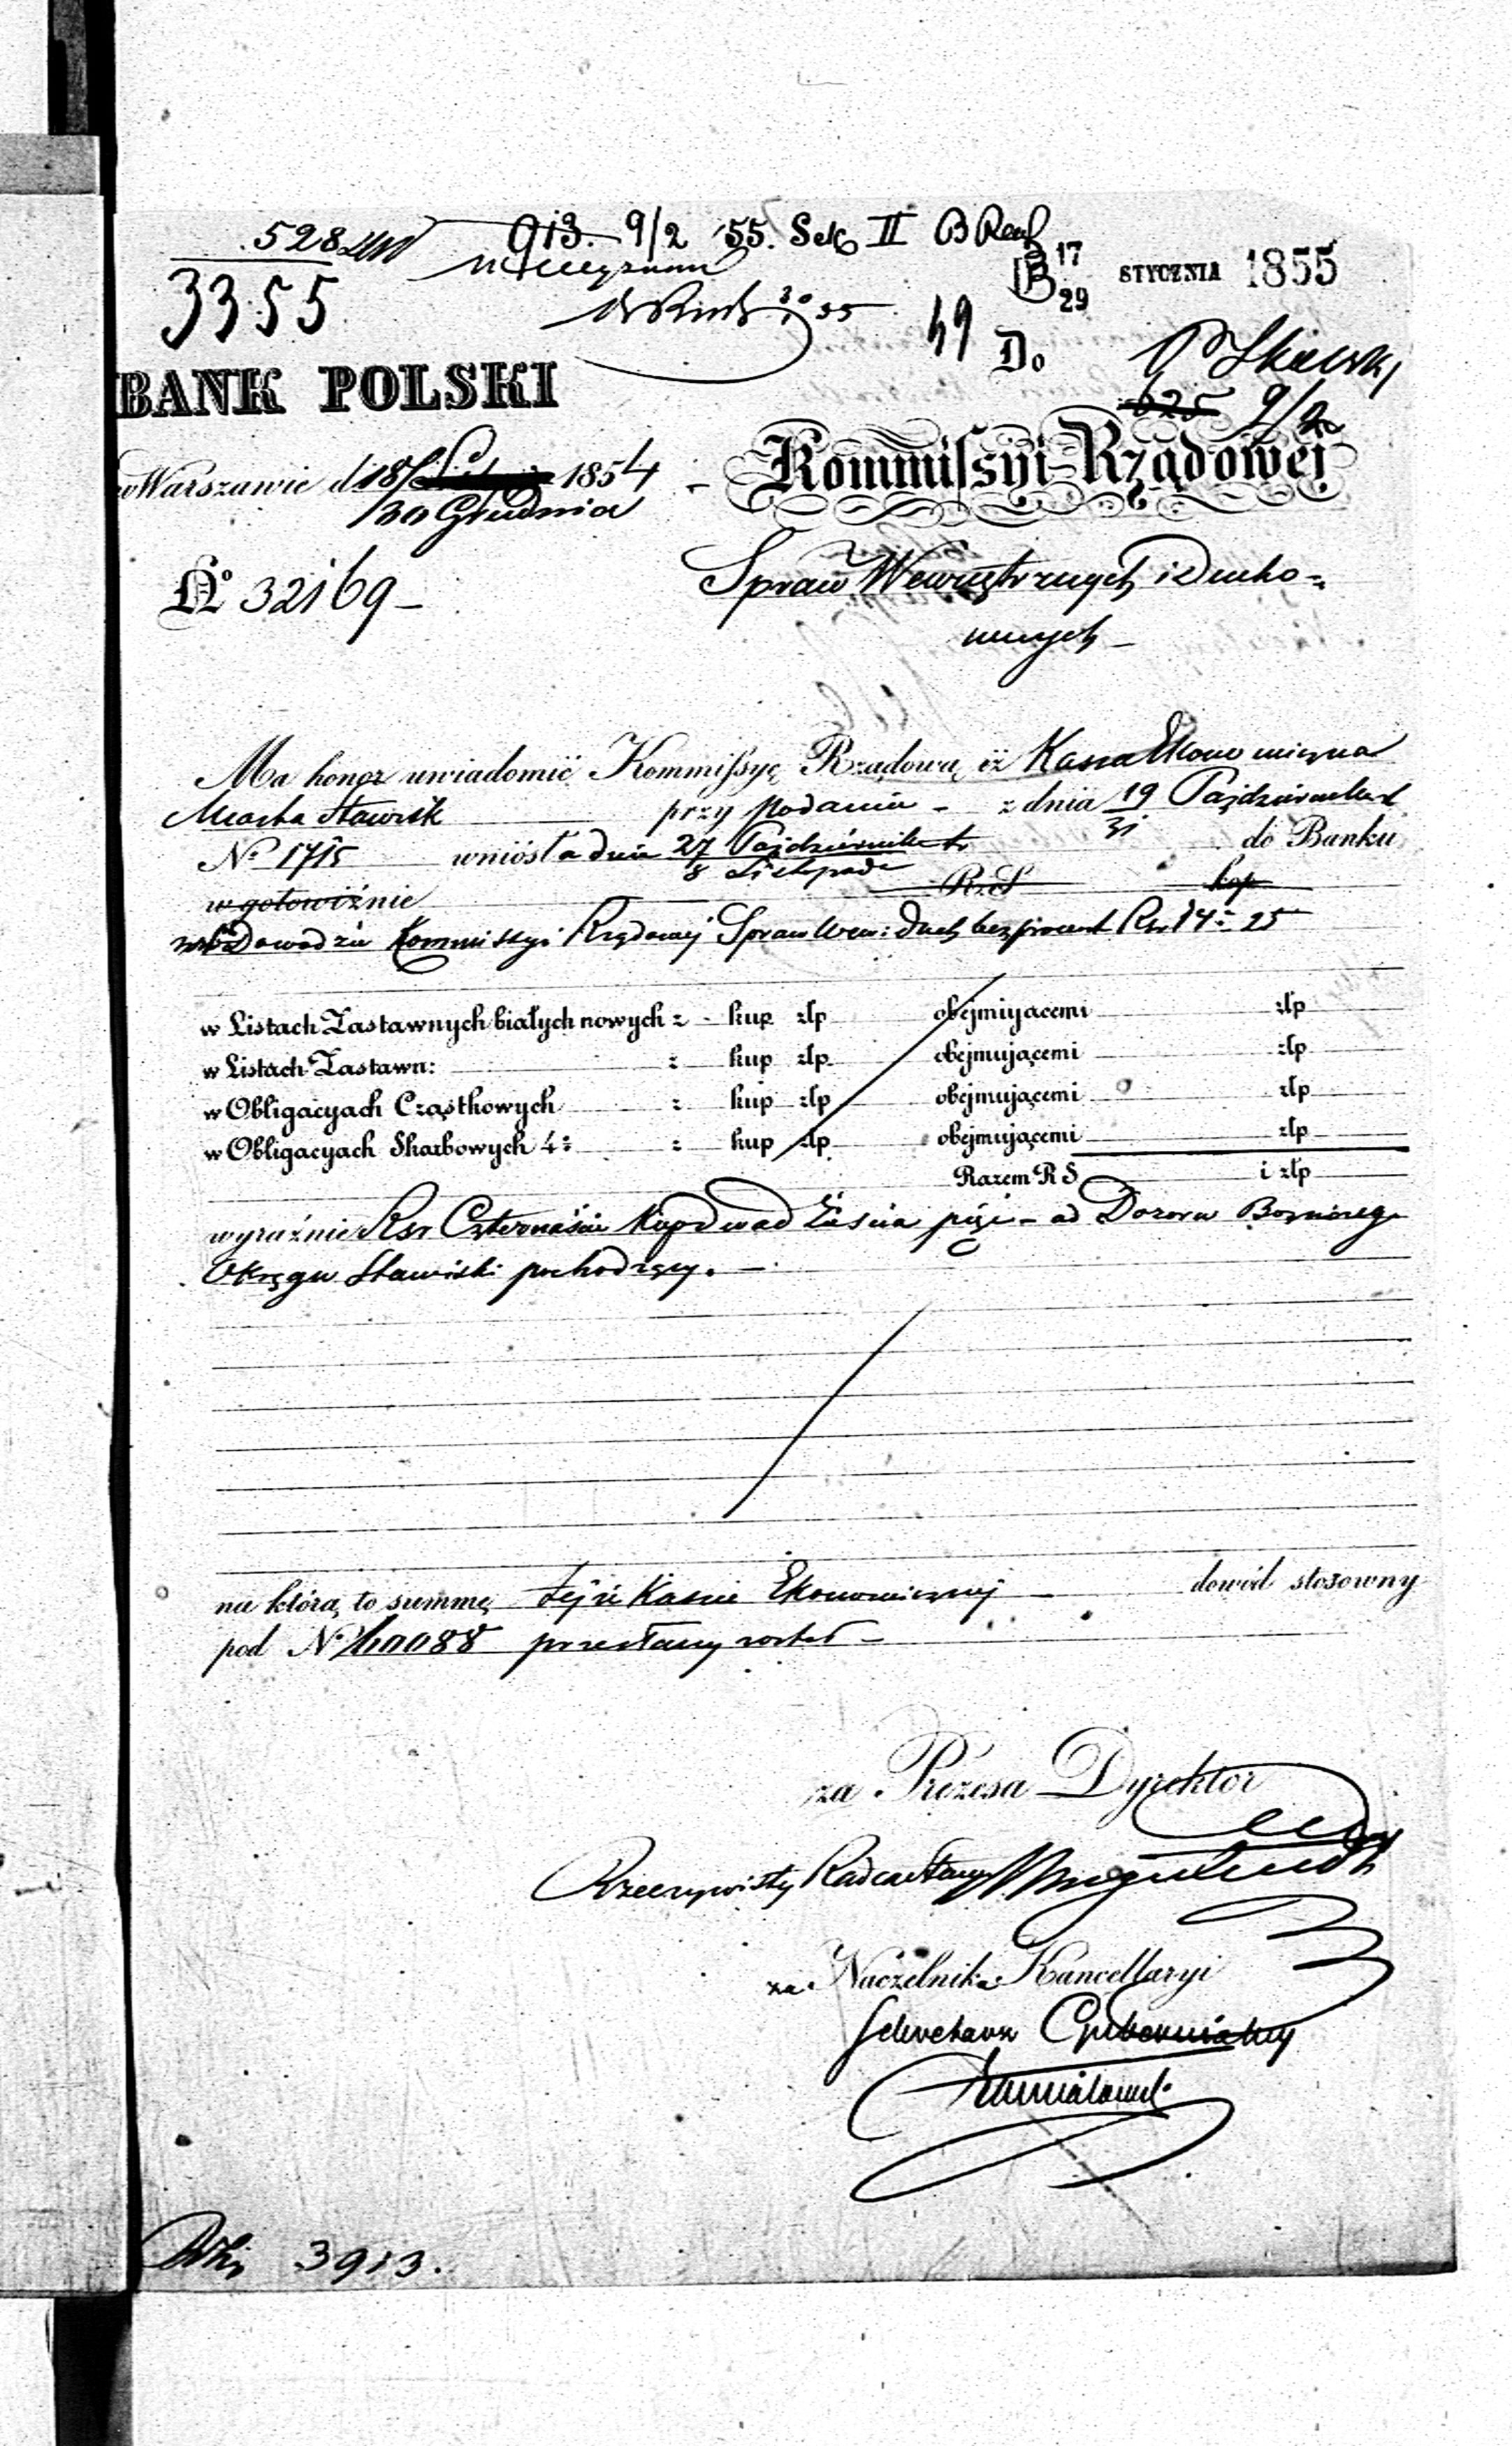 528
913. 9/2 55. Sek II B
3355
B 17/29 STYCZNIA 1855
49 Do
BANK POLSKI
625 9/2
w Warszawie d 18/30 Grudnia 1854
Kommissyi Rządowej
No 32169
Spraw Wewnętrznych i Ducho=
wnych
Ma honor uwiadomić Kommissyę Rządową iż Kassa Ekonomiczna
Miasta Stawisk przy podaniu z dnia 19/31 Października
No 1715 wniosła dnia 27 Października / 8 Listopada do Banku
w gotowiźnie RzeS kop
Dowodzie Kommissyi Rządowej Spraw Wew: Duch bezprocent Rsr 14 25
w Listach Zastawnych białych nowych z kup złp obejmiyącemi złp
w Listach Zastawn: z kup złp obejmującemi złp
w Obligacyach Cząstkowych z kup złp obejmującemi złp
w Obligacyach Skarbowych 4: z kup złp obejmującemi złp
Razem R S i złp
wyraźnie Rsr Czternaście Kop dwadzieścia pięć od Dozoru Bożniczego
Okręgu Stawiski pochodzący.
na którą to summę tejże Kassie Ekonomicznej dowód stosowny
pod No 40088 przesłany został
za Prezesa Dyrektor
Rzeczywisty Radca Stanu
za Naczelnika Kancellaryi
Sekretarz Gubernialny
3913.